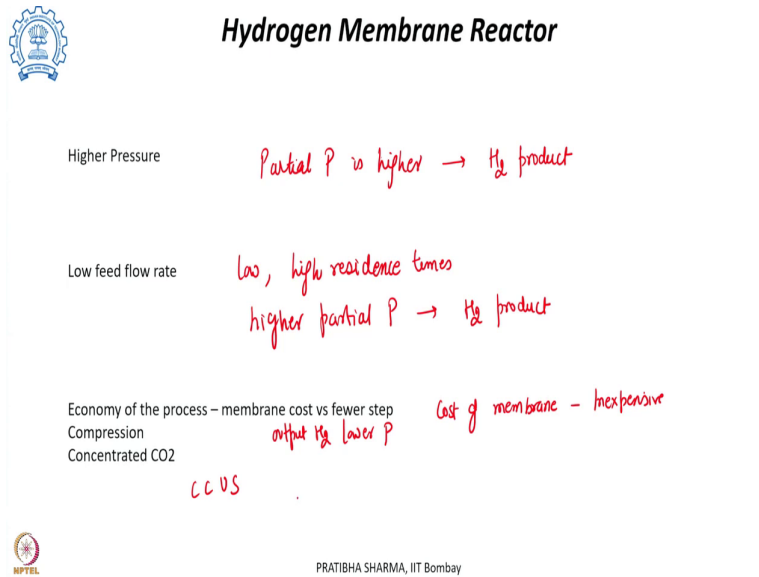 Hydrogen Membrane Reactor
Higher Pressure
Partial P is higher → H2 product
Low feed flow rate
low, high residence times
higher partial P → H2 product
Economy of the process – membrane cost vs fewer step
Cost of membrane – Inexpensive
Compression
output H2 lower P
Concentrated CO2
CCUS
NPTEL
PRATIBHA SHARMA, IIT Bombay